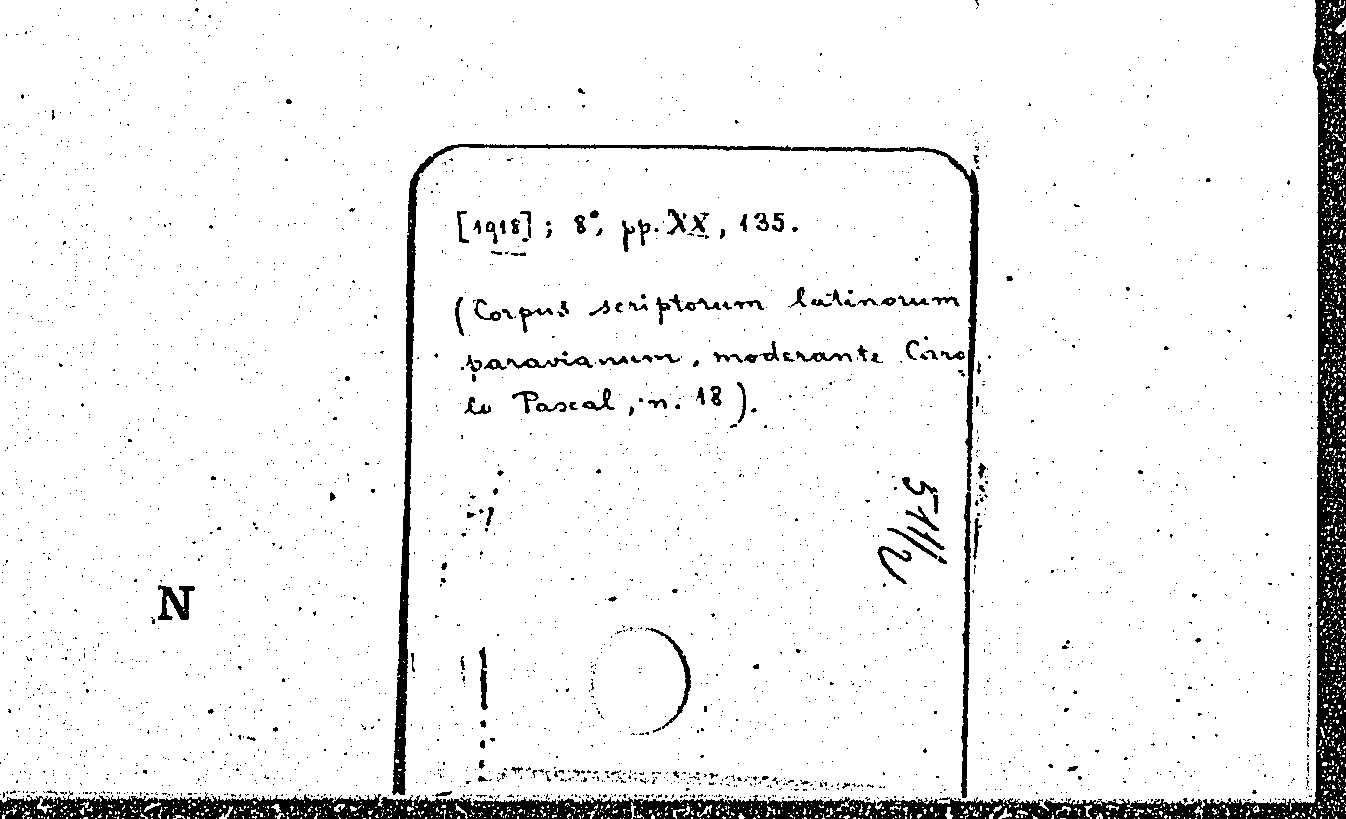 [1918]; 8°, pp. XX, 135.
(Corpus scriptorum latinorum
paravianum, moderante Caro
lo Pascal, n. 18).
511/2
N